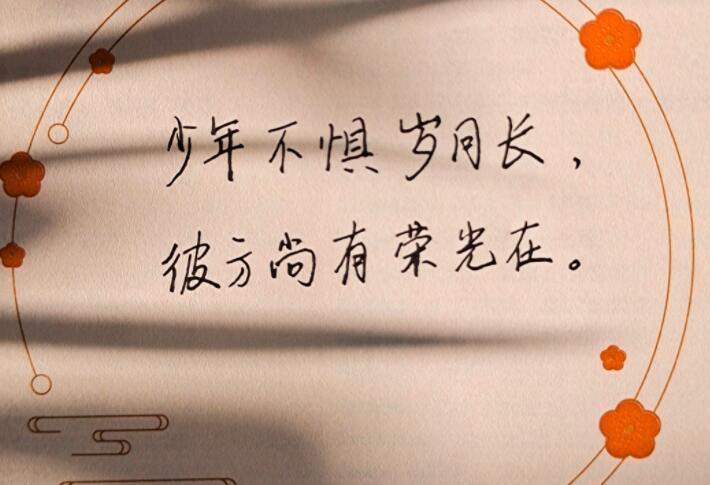 少年不惧岁月长，
彼方尚有荣光在。